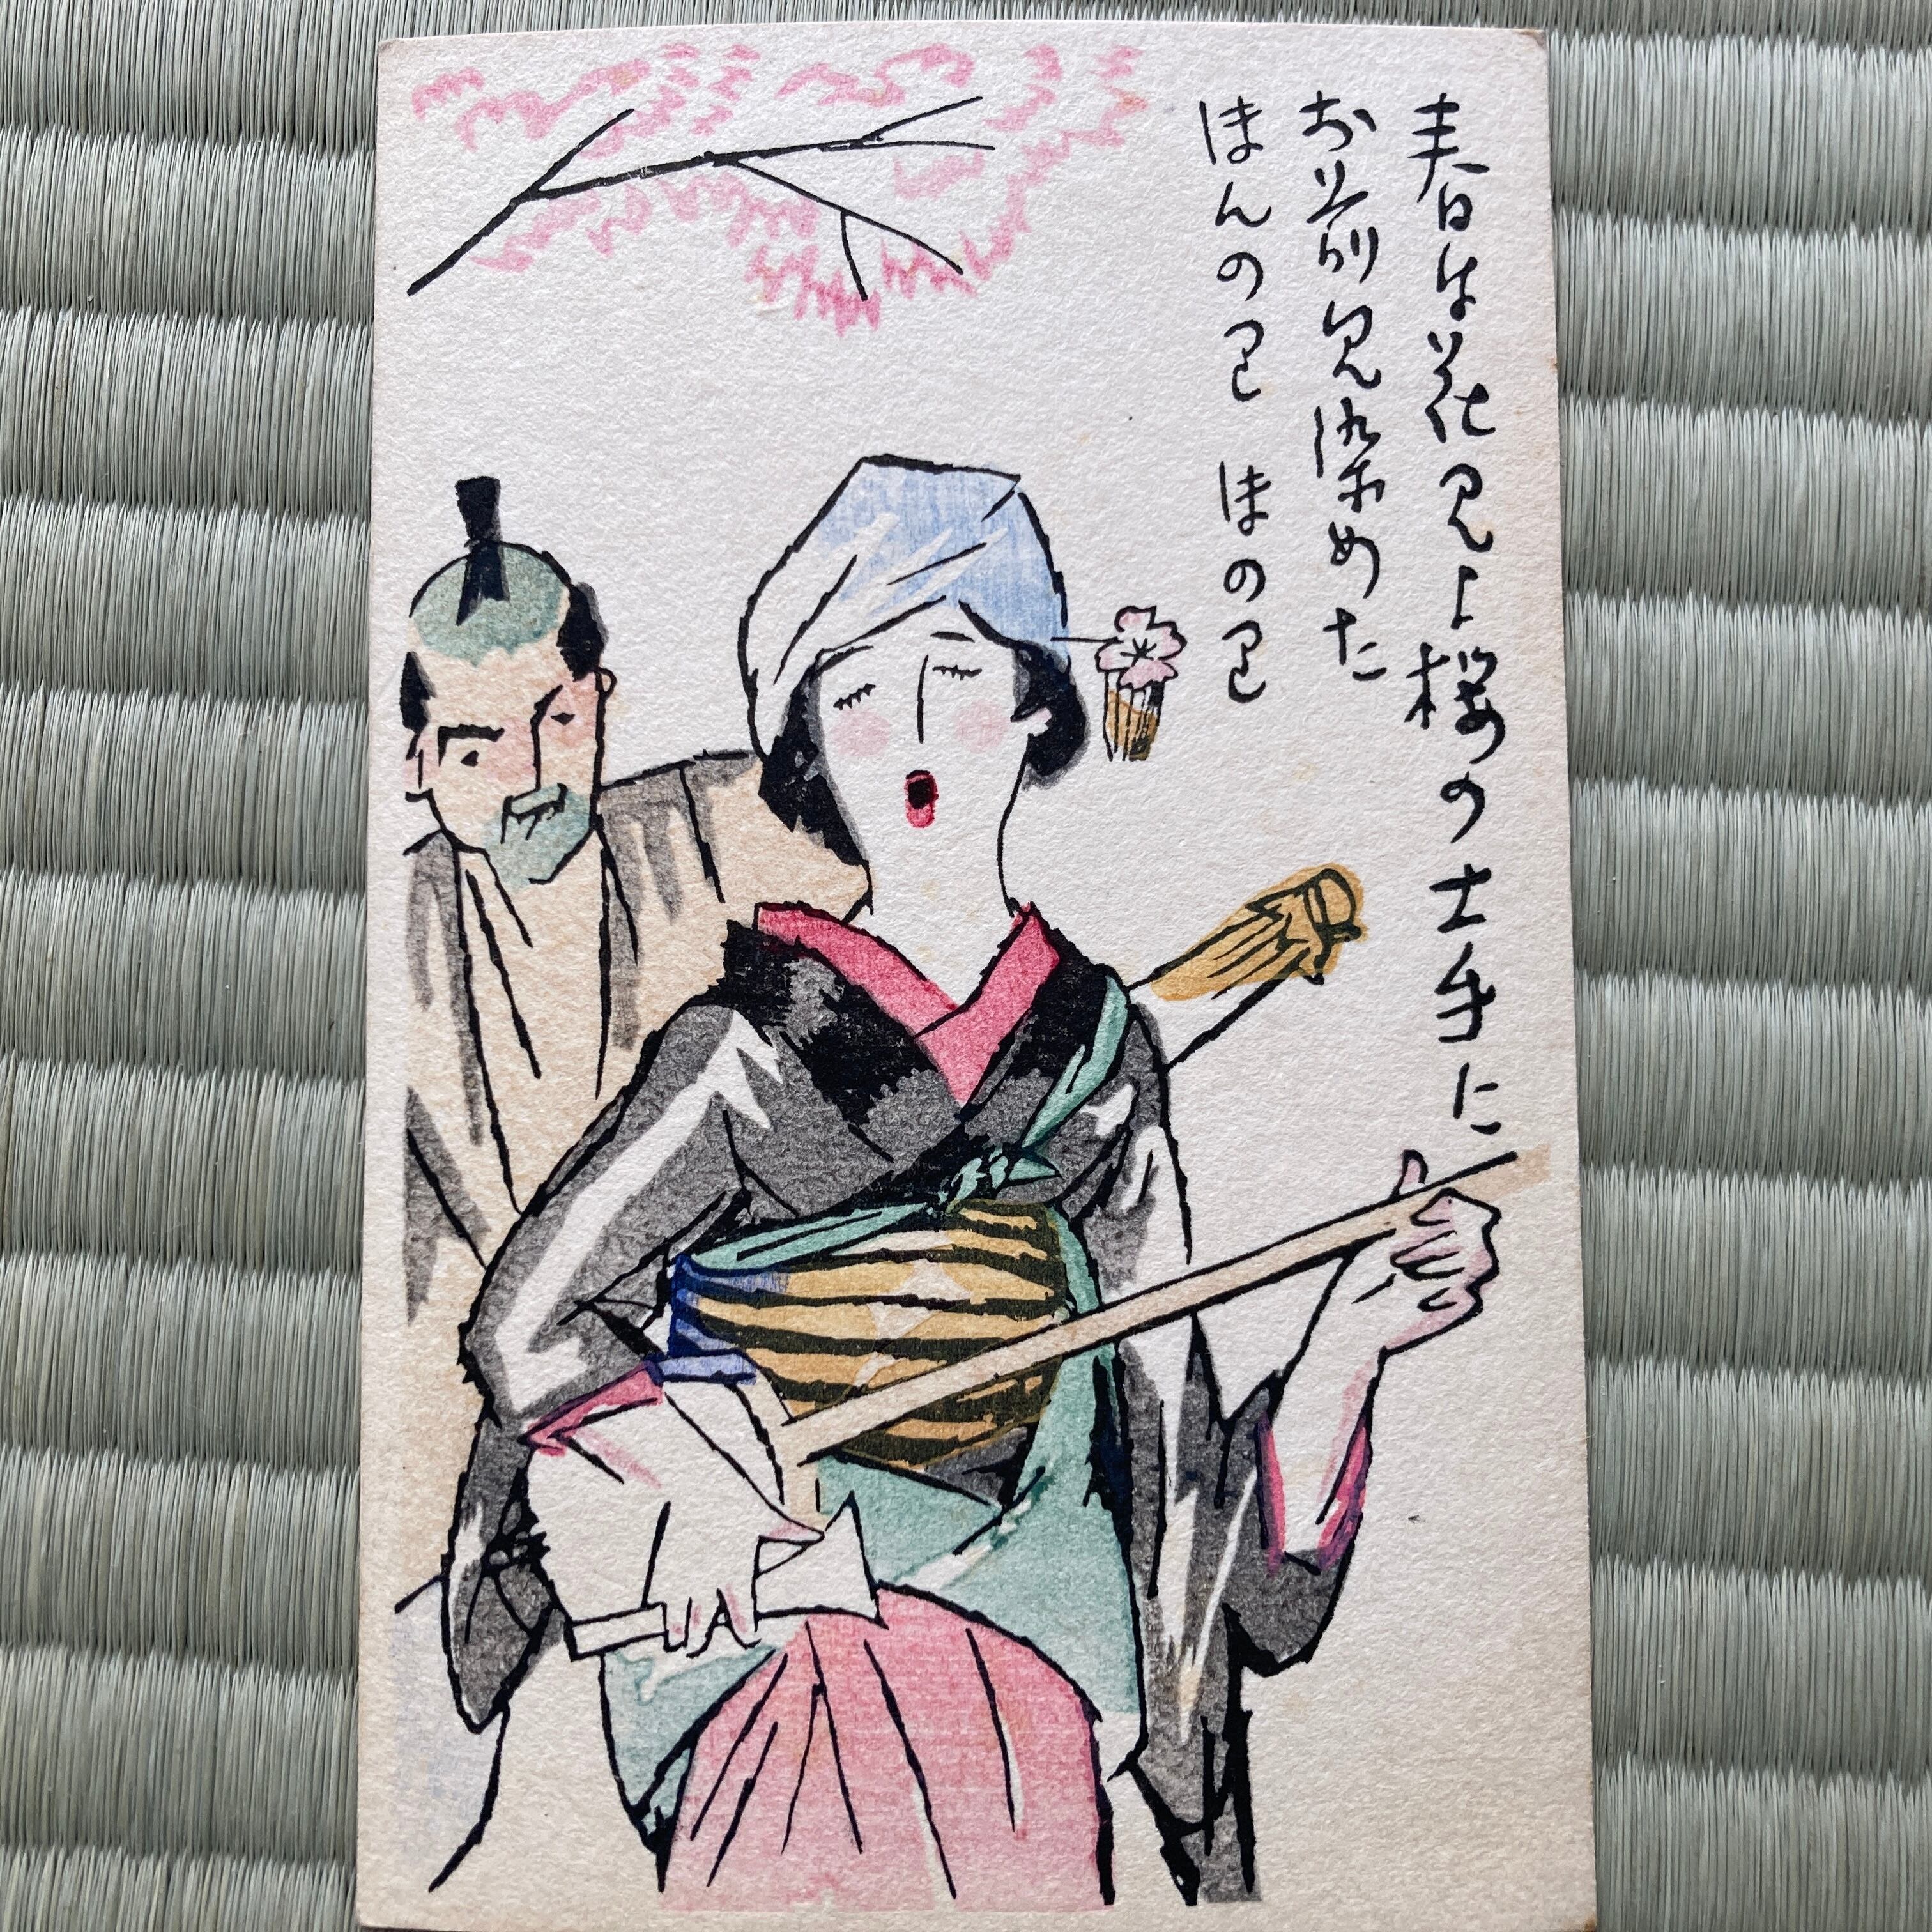 春は花見よ桜の土手に
お前見染めた
ほんのり ほのり